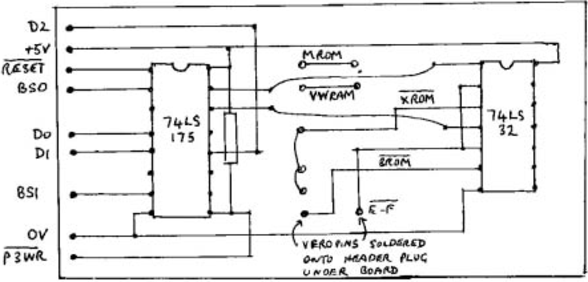 D2
+5V
RESET
BS0
D0
D1
BS1
0V
P3WR
74LS
175
MROM
VWRAM
XROM
BROM
E-F
74LS
32
VEROPINS SOLDERED
ONTO HEADER PLUG
UNDER BOARD